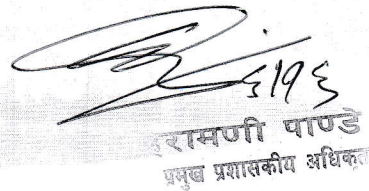 ६।१६
रामणी पाण्डे
प्रमुख प्रशासकीय अधिकृत